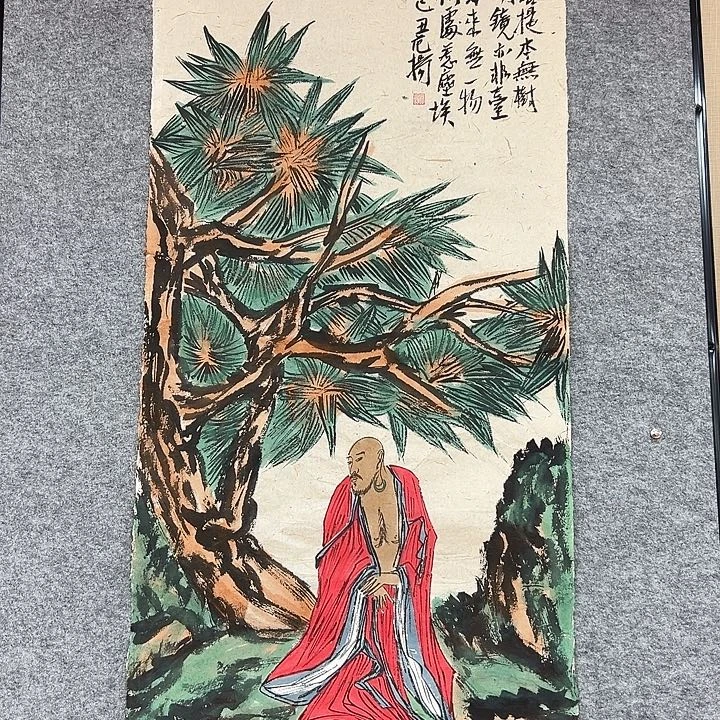 提本無樹
鏡亦非臺
來無一物
處惹塵埃
丑